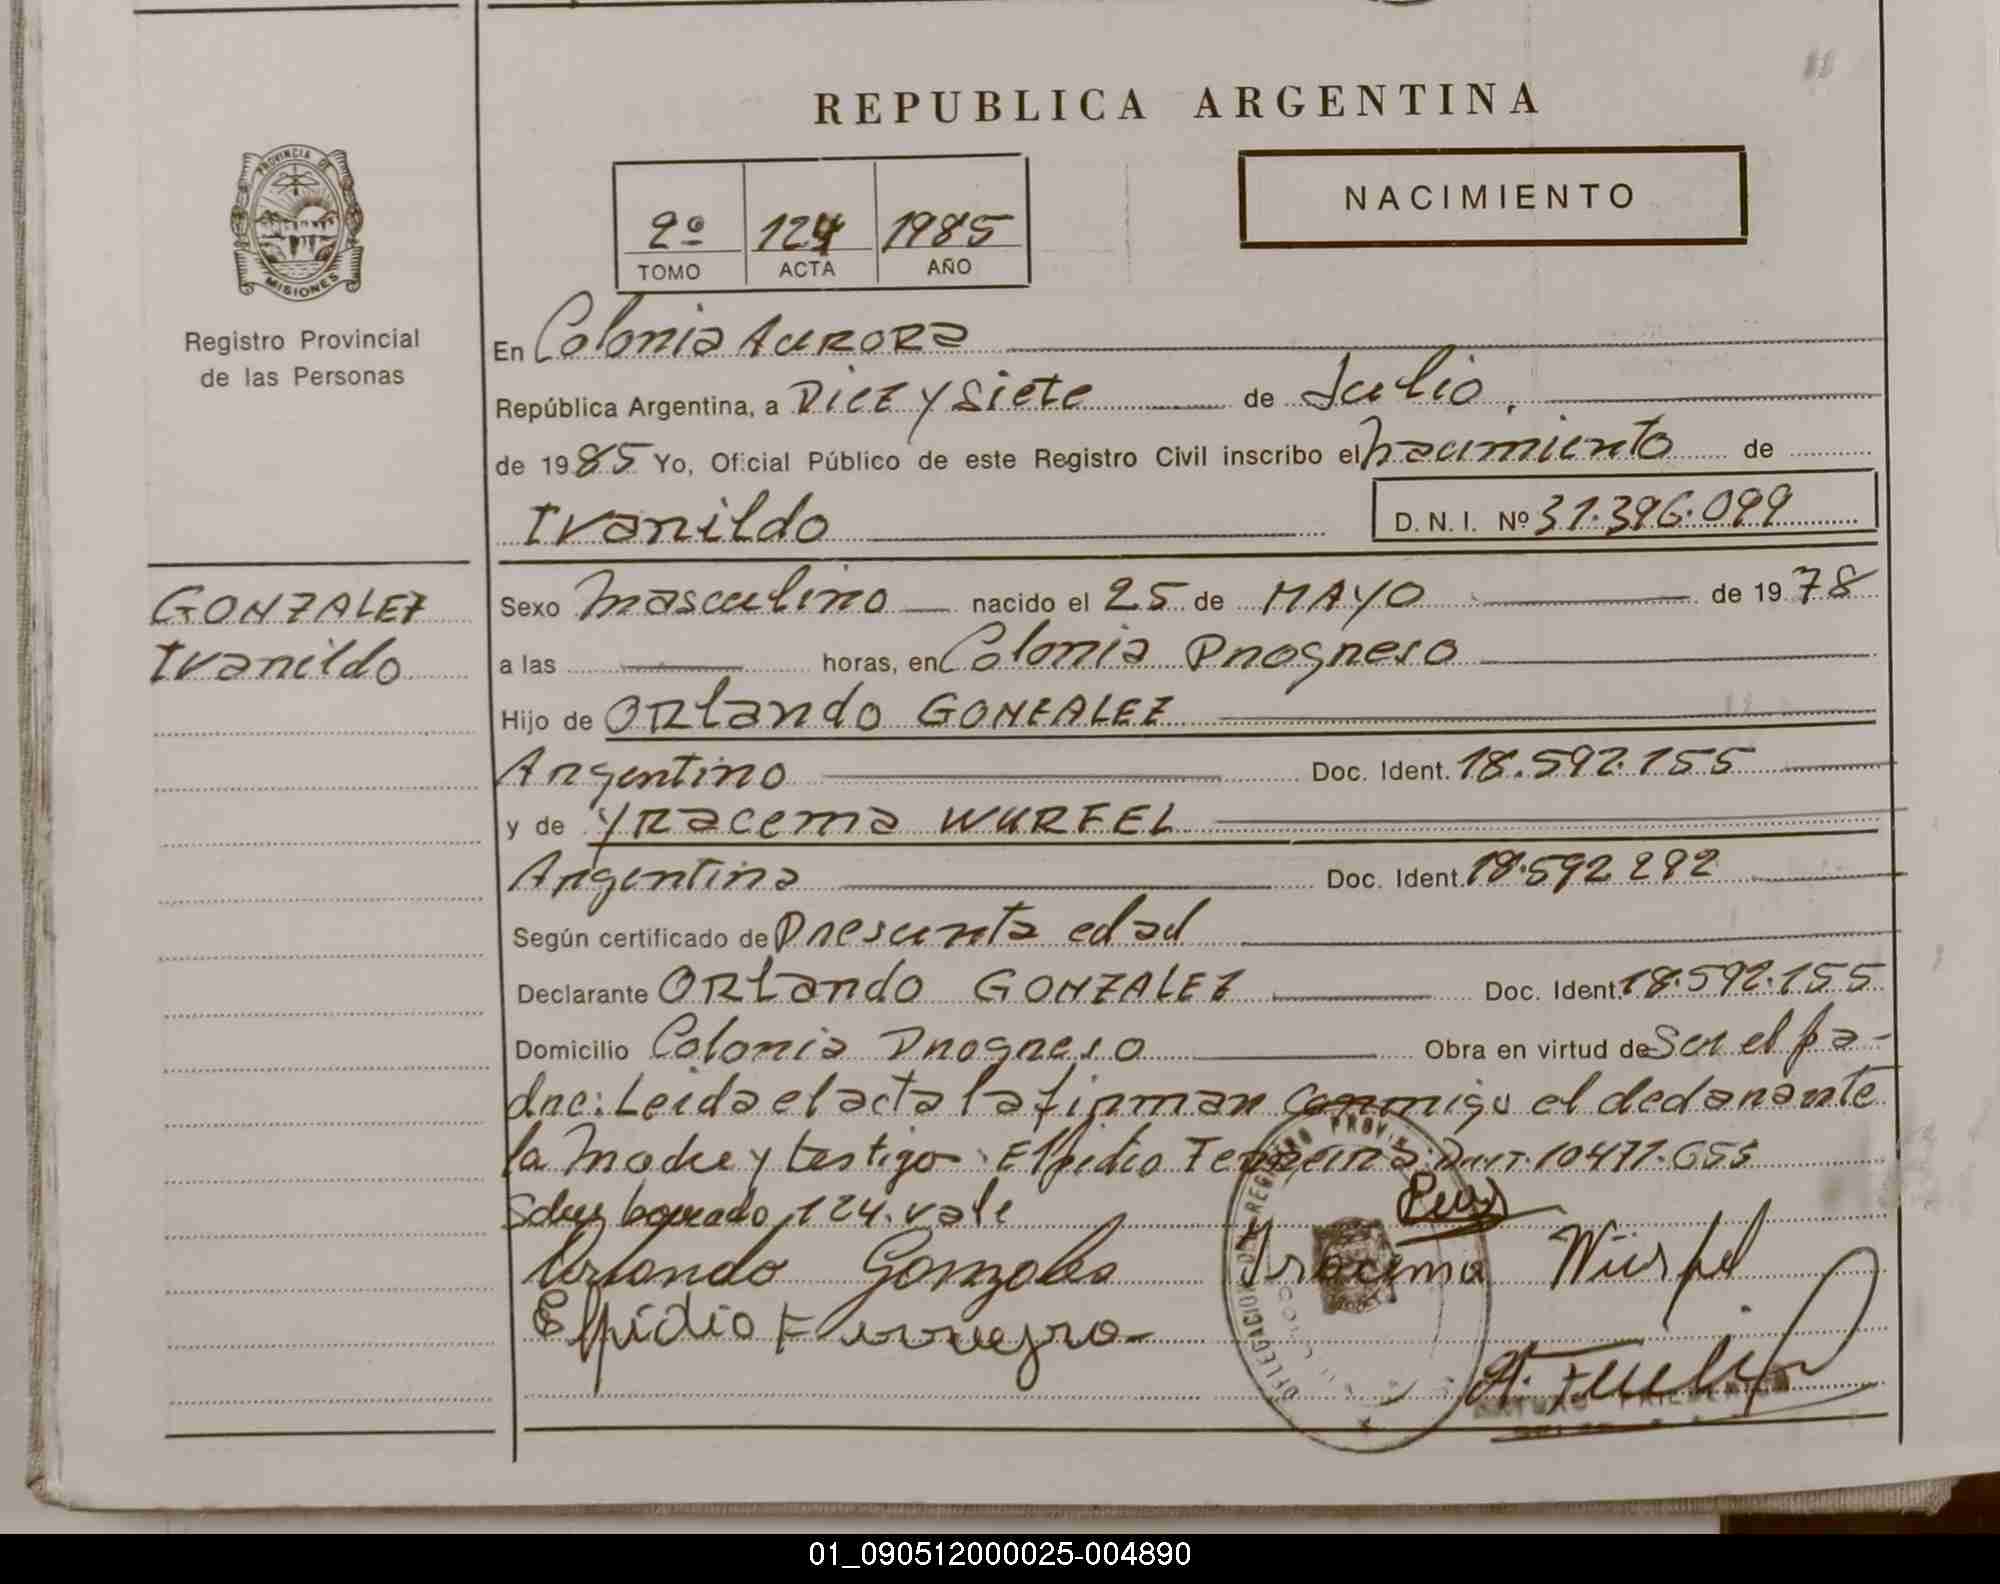 REPUBLICA ARGENTINA
NACIMIENTO
PROVINCIA DE
MISIONES
Registro Provincial
de las Personas
2º 124 1985
TOMO ACTA AÑO
En Colonia Aurora
República Argentina, a Diez y Siete de Julio
de 1985 Yo, Oficial Público de este Registro Civil inscribo el nacimiento de
Ivanildo D. N. I. Nº 31.396.099
GONZALEZ
Ivanildo
Sexo Masculino nacido el 25 de MAYO de 1978
a las horas, en Colonia Progreso
Hijo de Orlando GONZALEZ
Argentino Doc. Ident. 18.592.155
y de Yracema WURFEL
Argentina Doc. Ident. 18.592.292
Según certificado de Presunta edad
Declarante Orlando GONZALEZ Doc. Ident. 18.592.155
Domicilio Colonia Progreso Obra en virtud de Ser el pa-
dre: Leida el acta la firman conmigo el declarante
la Madre y testigo: Elpidio Ferreira: 10471.655
Sobre borrado, 124. vale
Orlando Gonzales Iracema Würfel
Elpidio
DELEGACION DEL REGISTRO PROVIN
01_090512000025-004890